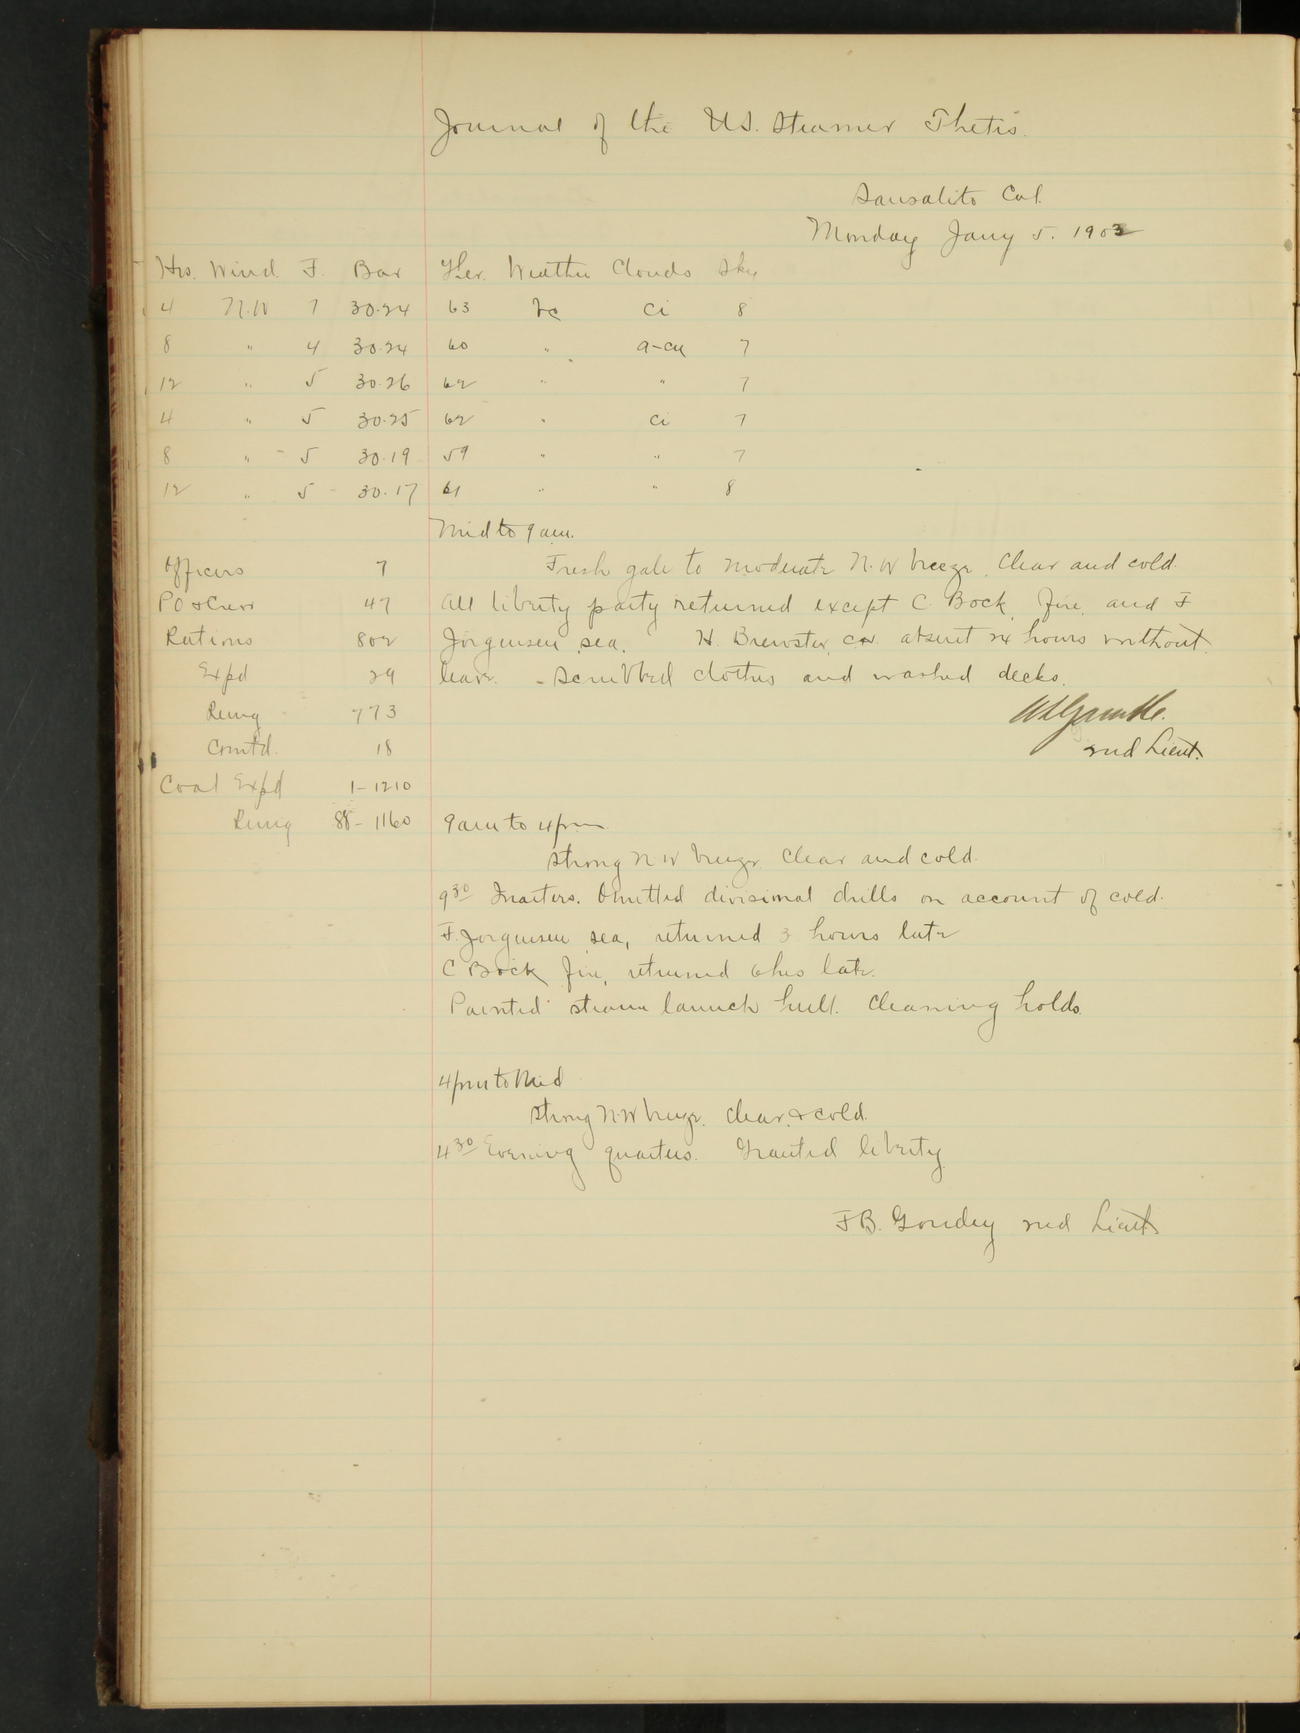 Journal of the U.S. Steamer Thetis.
Sausalito Cal.
Monday Jany 5. 1903
Hrs. Wind F. Bar Ther. Weather Clouds Sky
4 N.W 7 30.24 63 bc Ci 8
8 " 4 30.24 60 " a-cu 7
12 " 5 30.26 62 " " 7
4 " 5 30.25 62 " Ci 7
8 " 5 30.19 59 " " 7
12 " 5 30.17 61 " " 8
Mid to 9 am.
Officers 7 Fresh gale to moderate N.W breeze. Clear and cold.
PO & Crew 47 All liberty party returned except C. Bock, fire, and F
Rations 802 Jorgensen sea. H. Brewster, absent 24 hours without
Expd 29 leave. - Scrubbed clothes and washed decks.
Remg 773
2nd Lieut.
Comtd. 18
Coal Expd 1-1210
Remg 88-1160 9 am to 4 pm
Strong N W breeze, Clear and cold.
9 30 Quarters. Omitted divisional drills on account of cold.
F. Jorgensen sea, returned 3 hours late
C Bock fire, returned 6 hrs late.
Painted steam launch hull. Cleaning holds.
4 pm to Mid
Strong N.W breeze. Clear & cold.
4 30 Evening quarters. Granted liberty
F B. Goudey 2nd Lieut